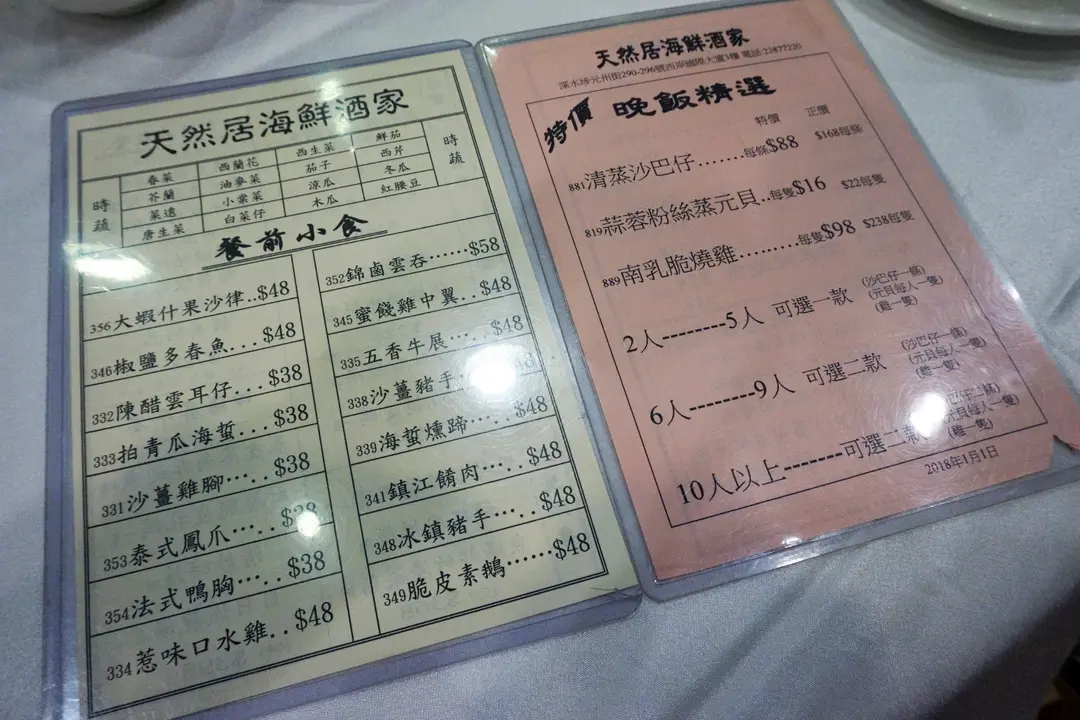 天然居海鮮酒家
時蔬
春菜 西蘭花 西生菜 鮮茄
芥蘭 油麥菜 茄子 西芹
菜遠 小棠菜 涼瓜 冬瓜
唐生菜 白菜仔 木瓜 紅腰豆
時蔬
餐前小食
356大蝦什果沙律..$48
346椒鹽多春魚...$48
332陳醋雲耳仔...$38
333拍青瓜海蜇...$38
331沙薑雞腳....$38
353泰式鳳爪.....$38
354法式鴨胸.....$38
334惹味口水雞..$48
352錦鹵雲吞......$58
345蜜餞雞中翼..$48
335五香牛展...$48
338沙薑豬手
339海蜇燻蹄.....$48
341鎮江餚肉.....$48
348冰鎮豬手...$48
349脆皮素鵝......$48
天然居海鮮酒家
深水埗元州街290-296號西岸國際大廈3樓 電話:23877220
特價 晚飯精選
特價 正價
881清蒸沙巴仔.......每條$88 $168每條
819蒜蓉粉絲蒸元貝..每隻$16 $22每隻
889南乳脆燒雞.........每隻$98 $238每隻
2人--------5人 可選一款 (沙巴仔一條)
(元貝每人一隻)
(雞一隻)
6人---------9人 可選二款 (沙巴仔一條)
(元貝每人一隻)
(雞一隻)
10人以上--------可選二款
(元貝每人一隻)
(雞一隻)
2018年1月1日